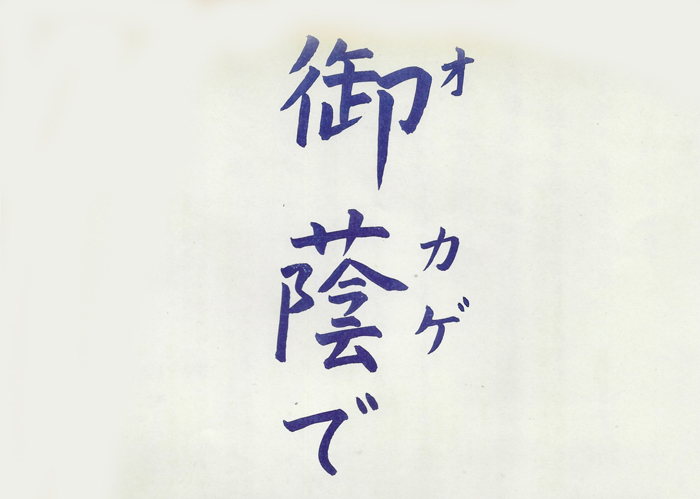 御蔭で
オカゲ